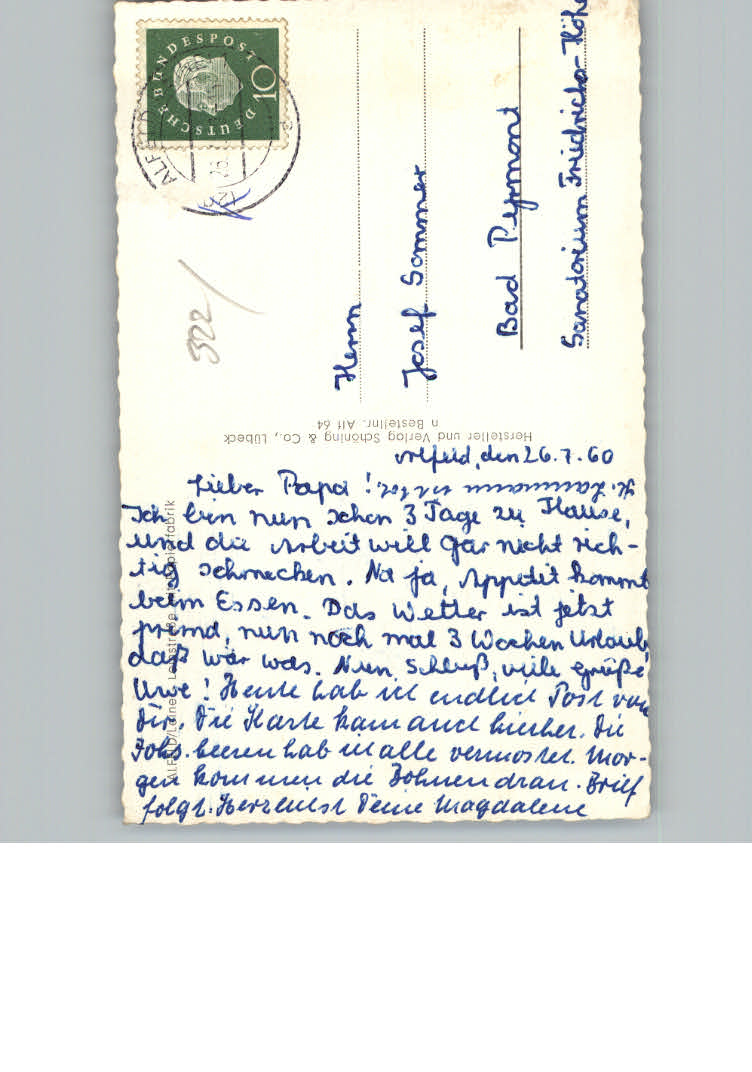 DEUTSCHE BUNDESPOST
10
ALFELD
322
Herrn
Josef Sommer
Bad Pyrmont
Sanatorium Friedrichs-Höhe
Hersteller und Verlag Schöning & Co., Lübeck
n Bestellnr. Alf 64
ALFELD/Leine, Leinstraße
Alfeld, den 26.7.60
Lieber Papa!
Ich bin nun schon 3 Tage zu Hause,
und die Arbeit will gar nicht rich-
tig schmecken. Na ja, Appetit kommt
beim Essen. Das Wetter ist jetzt
prima, nun noch mal 3 Wochen Urlaub,
daß wär was. Nun Schluß, viele Grüße
Uwe! Heute hab ich endlich Post von
Dir. Die Karte kam auch hierher. Die
Johs.beeren hab ich alle vermostet. Mor-
gen kommen die Bohnen dran. Brief
folgt. Herzlichst Deine Magdalene